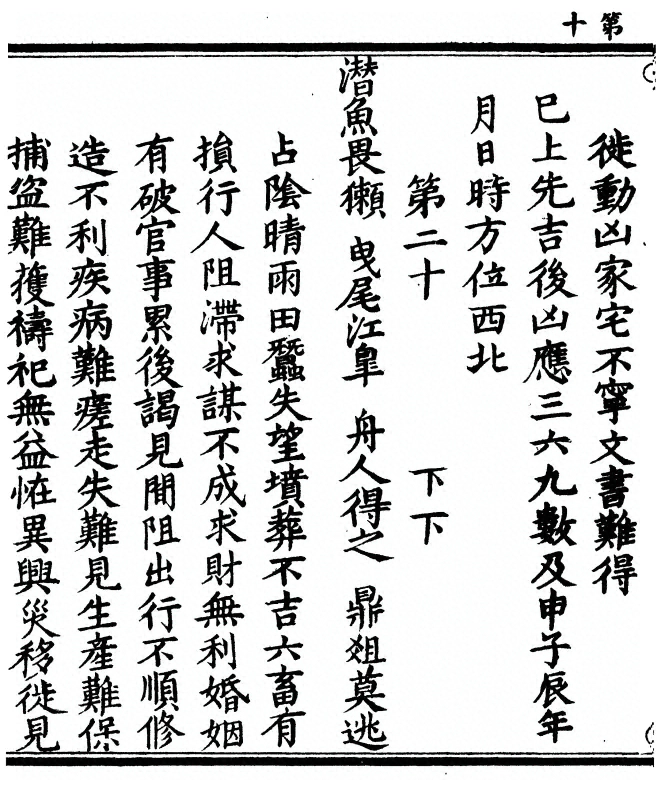 第十
徙動凶家宅不寧文書難得
巳上先吉後凶應三六九數及申子辰年
月日時方位西北
第二十 下下
潛魚畏獺 曳尾江皐 舟人得之 鼎俎莫逃
占陰晴雨田蠶失望墳葬不吉六畜有
損行人阻滯求謀不成求財無利婚姻
有破官事累後謁見間阻出行不順修
造不利疾病難瘥走失難見生產難保
捕盜難獲禱祀無益恠異興災移徙見